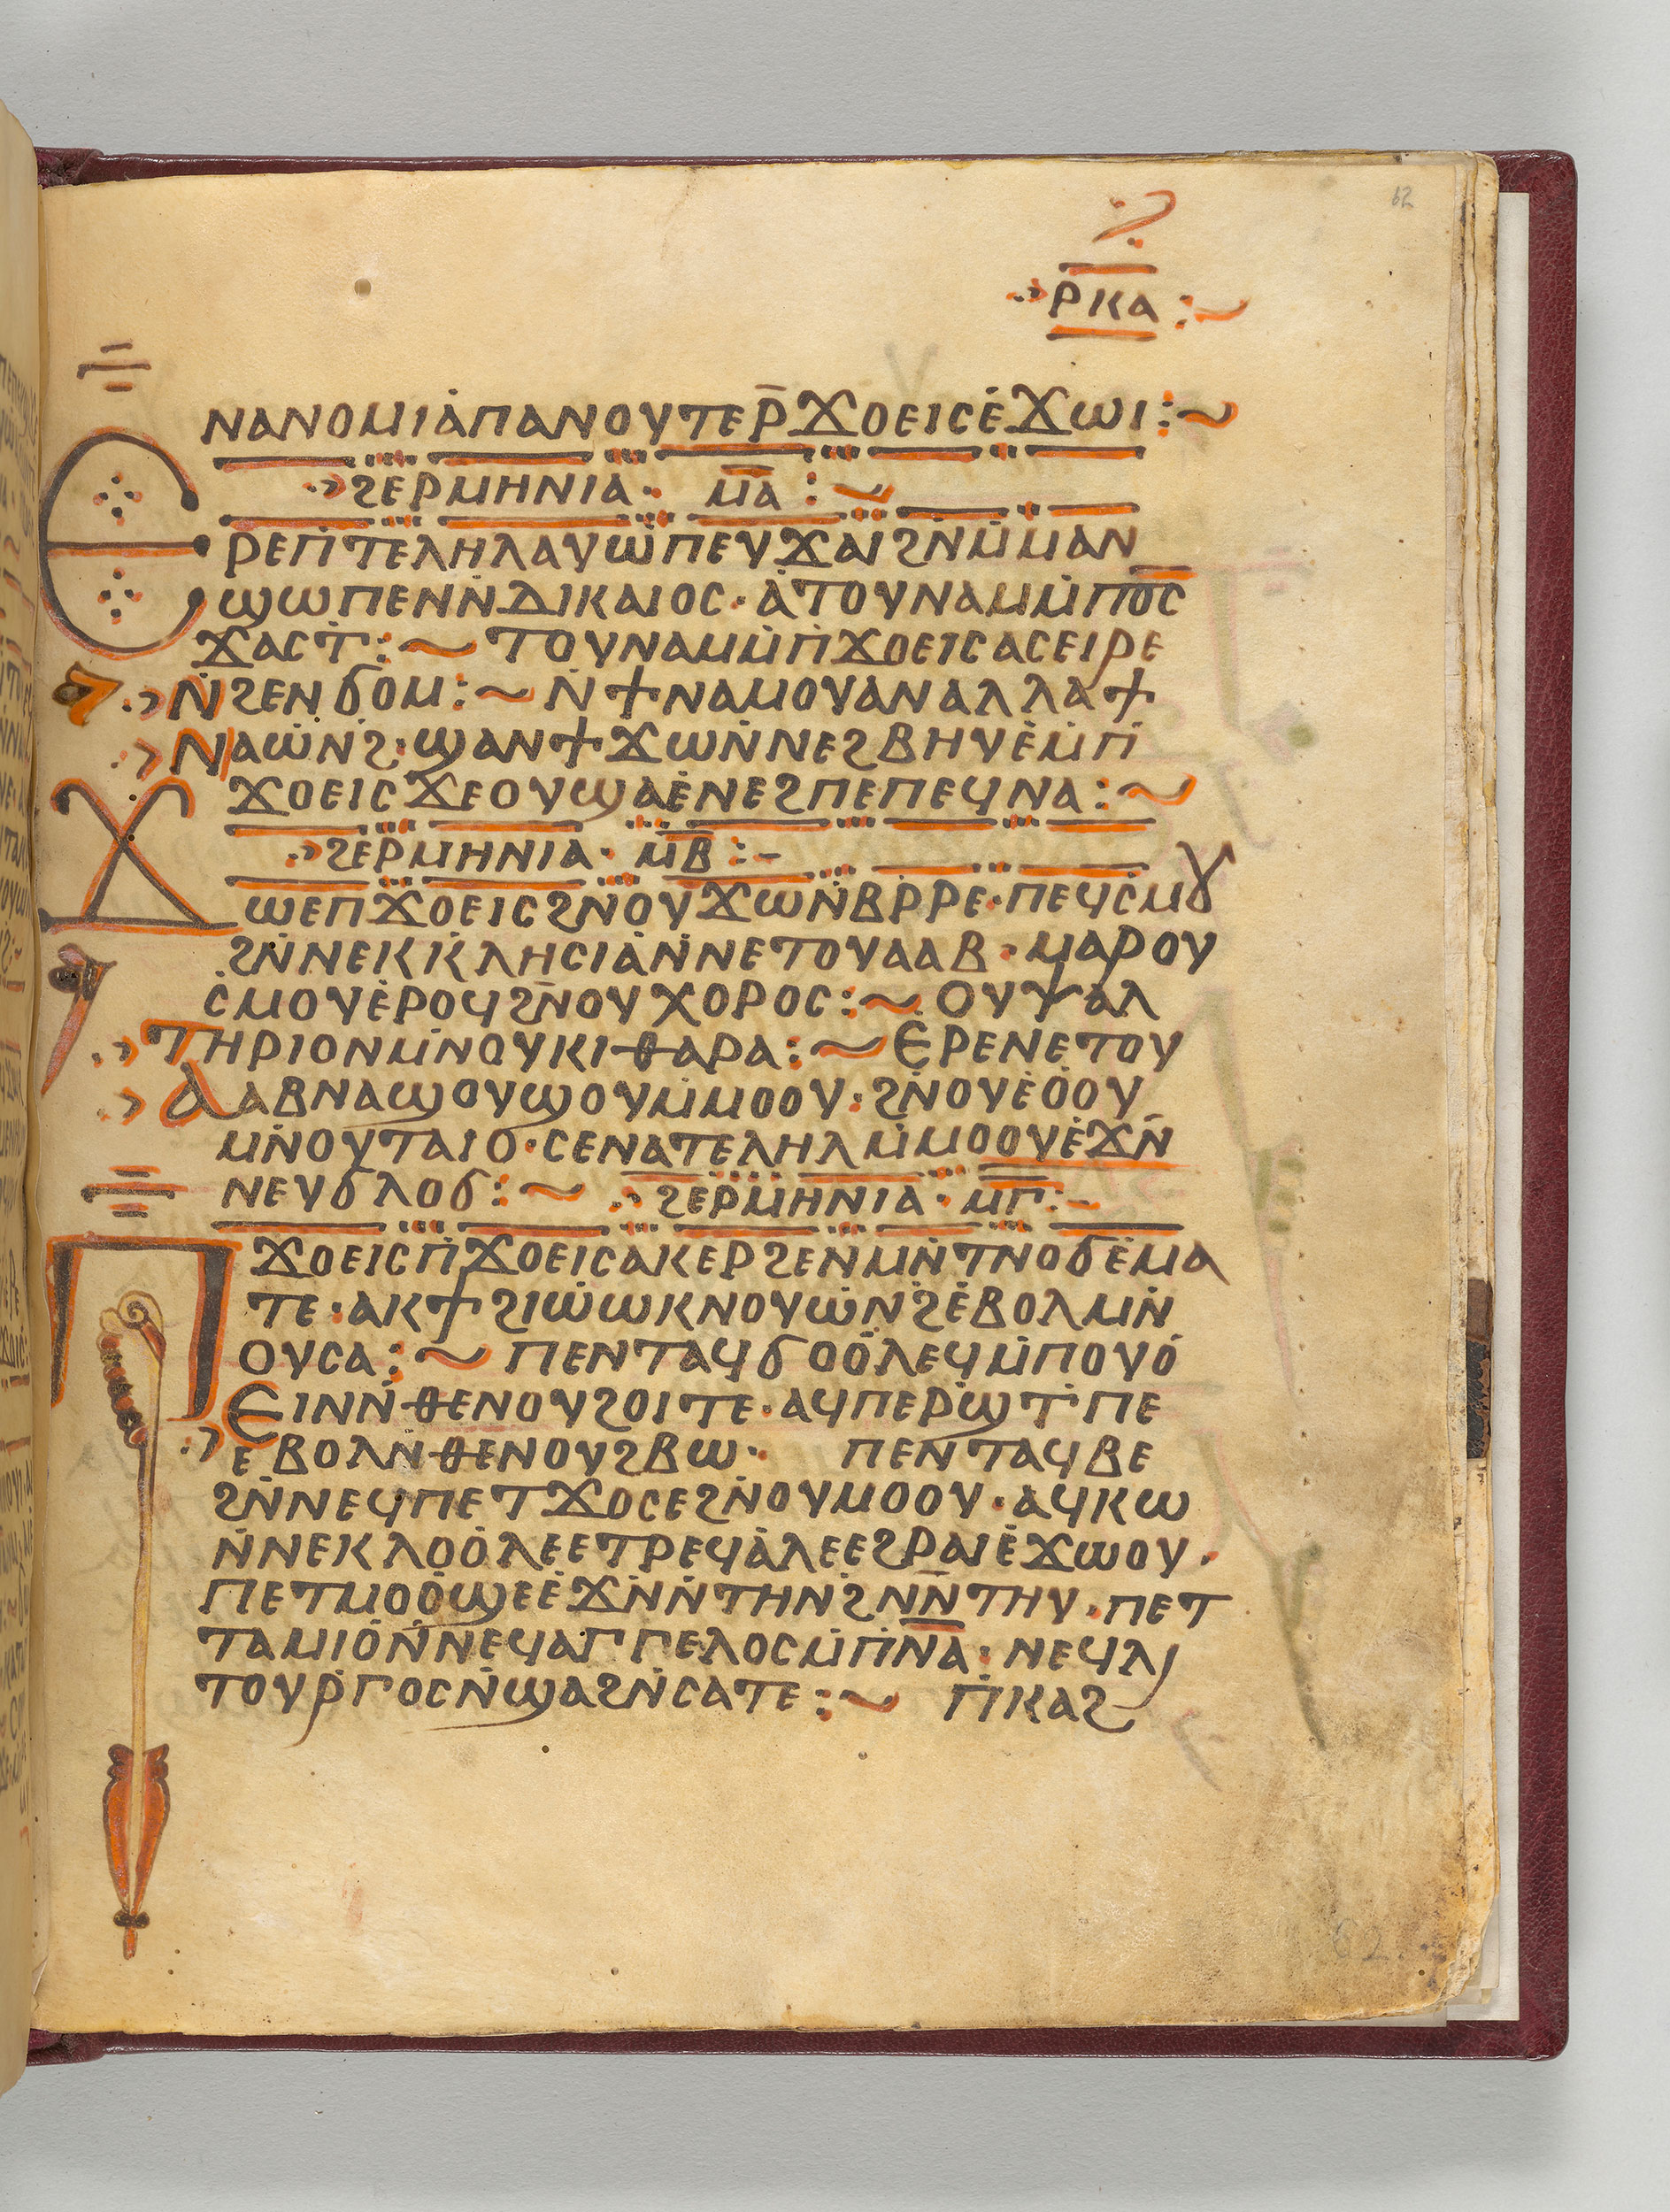 62
ⲣⲕⲁ
ⲛⲁⲛⲟⲙⲓⲁ̇ⲡⲁⲛⲟⲩⲧⲉⲣ̄ϫⲟⲉⲓⲥⲉ̇ϫⲱⲓ:~
ϩⲉⲣⲙⲏⲛⲓⲁ· ⲙ̅ⲁ̅:~
Ⲉⲣⲉⲡ̇ⲧⲉⲗⲏⲗⲁⲩⲱ̇ⲡⲉⲩϫⲁⲓϩⲛ̇ⲙ̇ⲙⲁⲛ
ϣⲱⲡⲉⲛⲛ̇ⲇⲓⲕⲁⲓⲟⲥ· ⲁ̇ⲧⲟⲩⲛⲁⲙⲙ̇ⲡⲟ̅ⲥ̅
ϫⲁⲥⲧ̇:~ ⲧⲟⲩⲛⲁⲙⲙ̇ⲡ̇ϫⲟⲉⲓⲥⲁⲥⲉⲓⲣⲉ
ⲛ̇ϩⲉⲛϭⲟⲙ:~ ⲛ̇ϯⲛⲁⲙⲟⲩⲁⲛⲁⲗⲗⲁϯ
ⲛⲁⲱ̇ⲛ̇ϩ·ϣⲁⲛϯϫⲱⲛ̇ⲛⲉϩⲃⲏⲩⲉ̇ⲙ̇ⲡ̇
ϫⲟⲉⲓⲥϫⲉⲟⲩϣⲁⲉ̇ⲛⲉϩⲡⲉⲡⲉϥⲛⲁ:~
ϩⲉⲣⲙⲏⲛⲓⲁ· ⲙ̅ⲃ̅:-
Ϫⲱⲉⲡϫⲟⲉⲓⲥϩⲛ̇ⲟⲩϫⲱⲛ̇ⲃⲣ̇ⲣⲉ·ⲡⲉϥⲥⲙⲟⲩ
ϩⲛ̇ⲛⲉⲕⲕ̇ⲗⲏⲥⲓⲁ̇ⲛ̇ⲛⲉⲧⲟⲩⲁⲁⲃ·ⲙⲁⲣⲟⲩ
ⲥⲙⲟⲩⲉ̇ⲣⲟϥϩⲛ̄ⲟⲩⲭⲟⲣⲟⲥ:~ ⲟⲩⲯⲁⲗ
ⲧⲏⲣⲓⲟⲛⲙⲛ̇ⲟⲩⲕⲓⲑⲁⲣⲁ:~ ⲉⲣⲉⲛⲉⲧⲟⲩ
ⲁⲁⲃⲛⲁϣⲟⲩϣⲟⲩⲙ̇ⲙⲟⲟⲩ·ϩⲛ̇ⲟⲩⲉ̇ⲟ̇ⲟⲩ
ⲙⲛ̇ⲟⲩⲧⲁⲓⲟ·ⲥⲉⲛⲁⲧⲉⲗⲏⲗⲙ̇ⲙⲟⲟⲩⲉ̇ϫⲛ̄
ⲛⲉⲩϭⲗⲟϭ:~ ϩⲉⲣⲙⲏⲛⲓⲁ· ⲙ̅ⲅ̅:-
Ⲡϫⲟⲉⲓⲥⲡ̇ϫⲟⲉⲓⲥⲁⲕⲉⲣϩⲉⲛⲙⲛ̇ⲧⲛⲟϭⲉ̇ⲙⲁ
ⲧⲉ·ⲁⲕϯϩⲓⲱ̇ⲱⲕⲛⲟⲩⲱ̇ⲛ̇ϩⲉ̇ⲃⲟⲗⲙⲛ̇
ⲟⲩⲥⲁ:~ ⲡⲉⲛⲧⲁϥϭⲟⲟ̇ⲗⲉϥⲙ̇ⲡⲟⲩⲟ̇
ⲉⲓⲛⲛ̇ⲑⲉⲛⲟⲩϩⲟⲓⲧⲉ·ⲁϥⲡⲉⲣ̇ϣⲧ̇ⲡⲉ
ⲉⲃⲟⲗⲛ̇ⲑⲉⲛⲟⲩϩⲃⲱ· ⲡⲉⲛⲧⲁϥⲃⲉ
ϩⲛ̇ⲛⲉϥⲡⲉⲧϫⲟⲥⲉϩⲛ̇ⲟⲩⲙⲟⲟⲩ·ⲁϥⲕⲱ
ⲛ̇ⲛⲉⲕⲗⲟⲟ̇ⲗⲉⲉⲧⲣⲉϥⲁ̇ⲗⲉⲉϩⲣⲁⲓⲉ̇ϫⲱⲟⲩ·
ⲡⲉⲧⲙⲟⲟ̇ϣⲉⲉ̇ϫⲛ̇ⲛ̇ⲧⲏⲛ̇ϩⲛ̄ⲛ̄ⲧⲏⲩ·ⲡⲉⲧ
ⲧⲁⲙⲓⲟ̇ⲛ̇ⲛⲉϥⲁⲅⲅⲉⲗⲟⲥⲙ̇ⲡ̅ⲛ̅ⲁ̅·ⲛⲉϥⲗⲓ
ⲧⲟⲩⲣ̇ⲅⲟⲥⲛ̇ϣⲁϩⲛ̇ⲥⲁⲧⲉ:~ ⲡ̇ⲕⲁϩ
62